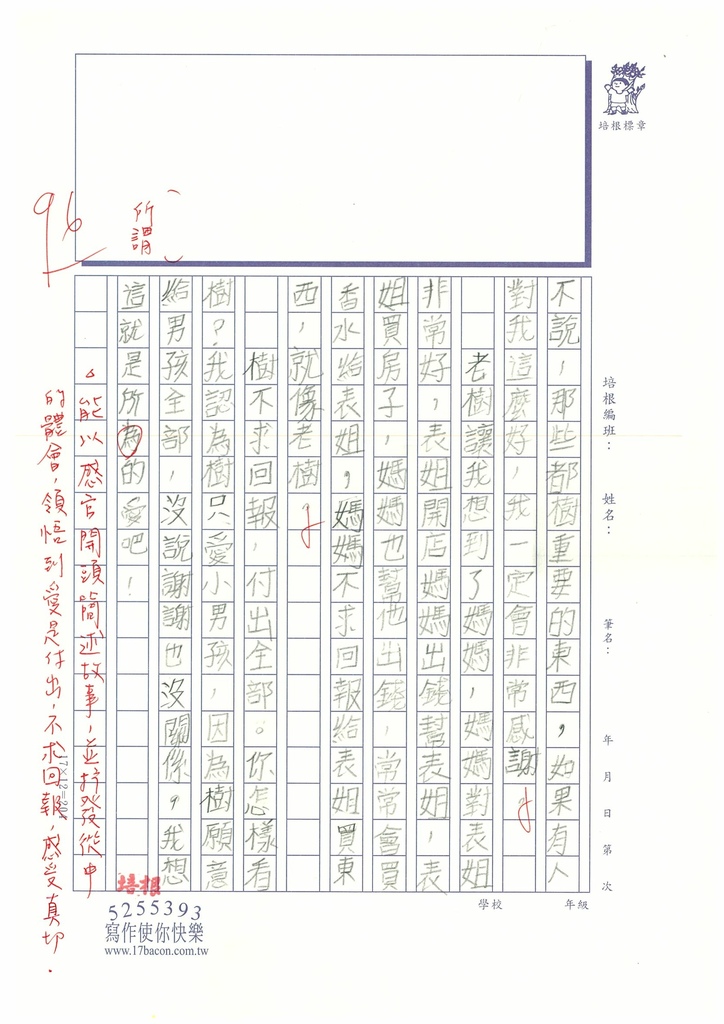 培根標章
培根編班：　姓名：　筆名：　年　月　日　第　次
學校　年級
不說，那些都樹重要的東西，如果有人
對我這麼好，我一定會非常感謝
老樹讓我想到了媽媽，媽媽對表姐
非常好，表姐開店媽媽出錢幫表姐，表
姐買房子，媽媽也幫他出錢，常常會買
香水給表姐，媽媽不求回報給表姐買東
西，就像老樹
樹不求回報，付出全部。你怎樣看
樹？我認為樹只愛小男孩，因為樹願意
給男孩全部，沒說謝謝也沒關係，我想
這就是所為的愛吧！
所謂
96
。能以感官開頭簡述故事，並抒發從中
的體會，領悟到愛是付出，不求回報，感受真切．
17×12=204
培根
5255393
寫作使你快樂
www.17bacon.com.tw